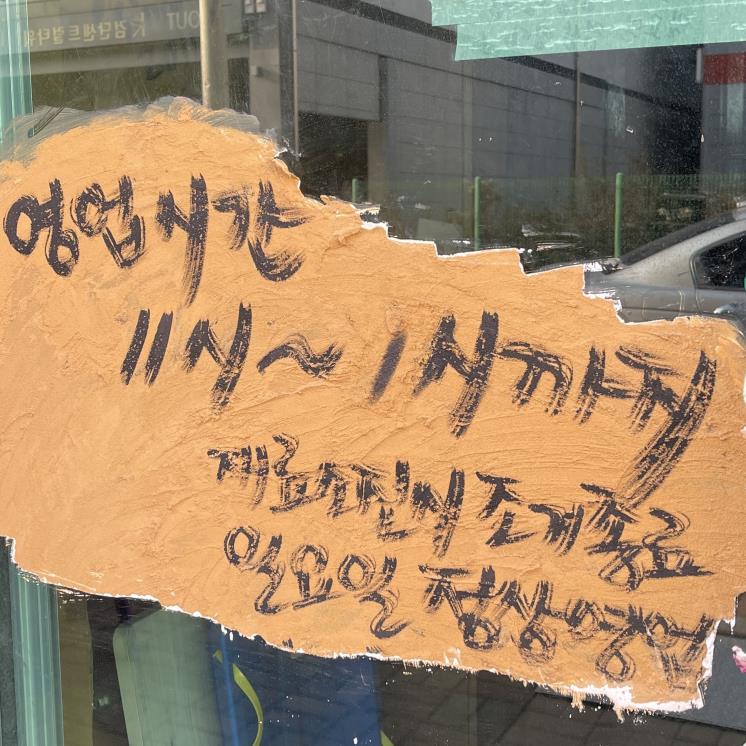 영업시간
11시~1시까지
재료소진시 조게종료
일요일 정상영업